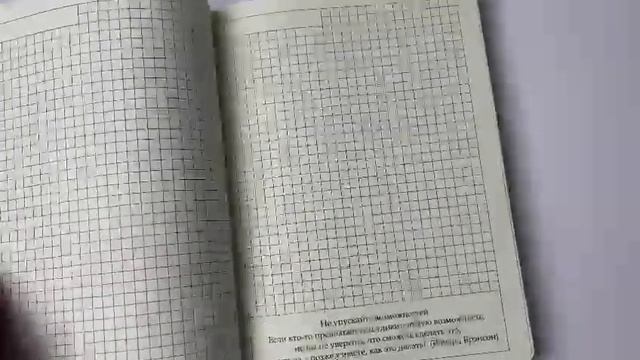 Не упускайте возможностей
Если кто-то предлагает вам удивительную возможность,
но вы не уверены, что сможете сделать это,
позже узнаете, как это делать! (Ричард Брэнсон)